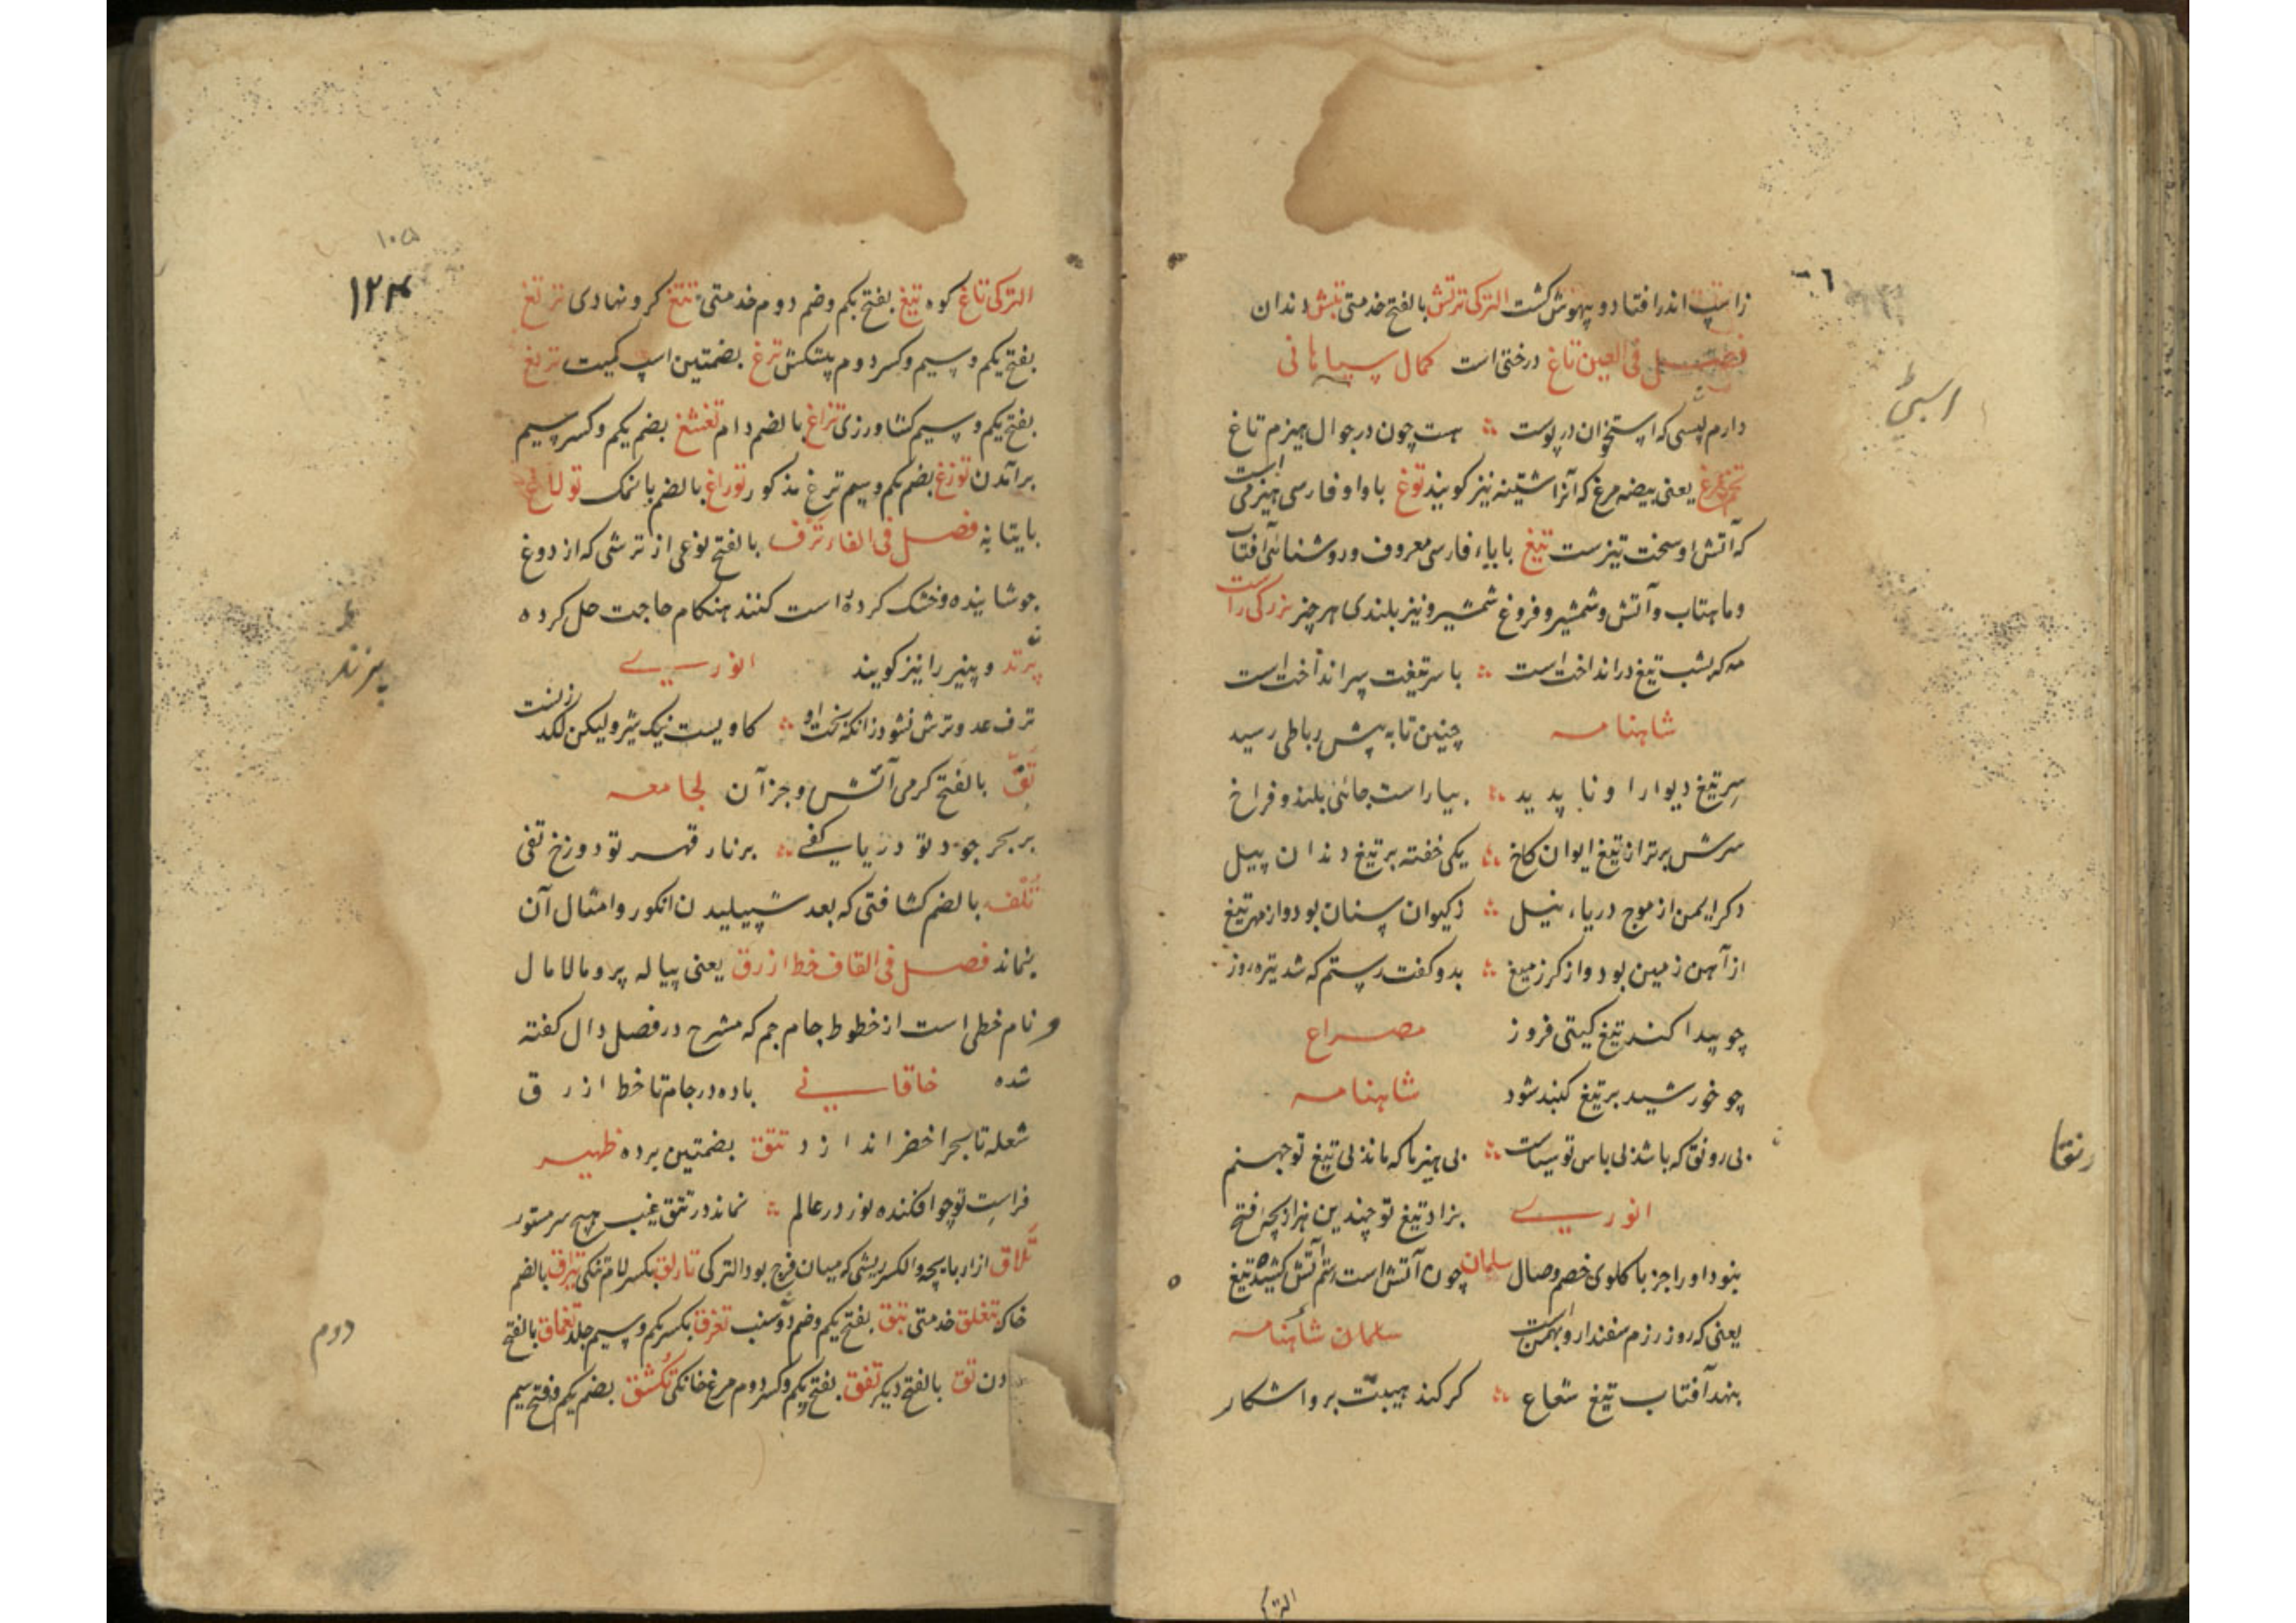 زاسپ اندر افتاد و بیهوش گشت الترکی ترتش بالفتح خدمتی تتش دندان
فصل فی الغین تاغ درختی است کمال سپاهانی
دارم لپسی که استخوان در پوست ؞ هست چون در جوال هیزم تاغ
یعنی بیضه مرغ که آنرا اشتینه نیز کویند توغ باواو فارسی هیزمی است
که آتش او سخت تیزست تیغ بایاء فارسی معروف و روشنائی آفتاب
وماهتاب وآتش وشمشیر و فروغ شمشیر و نیز بلندی هر چیز بزرکی راست
مه که بشب تیغ در انداخت است ؞ با سر تیغت سپر انداخت است
شاهنامه چنین تا به پیش رباطی رسید
سر تیغ دیوار او نا پدید ؞ بیاراست جائی بلند و فراخ
سرش برتر از تیغ ایوان کاخ ؞ یکی خفته بر تیغ دندان پیل
دکر ایمن از موج دریاء نیل ؞ زکیوان سنان بود واز مهر تیغ
از آهن زمین بود واز کرز میغ ؞ بدو کفت رستم که شد تیره روز
چو پیدا کند تیغ کیتی فروز مصراع
چو خورشید بر تیغ کنبد شود شاهنامه
بی رونق که باشد بی باس تو سیاست ؞ بی هیزما که ماند بی تیغ تو جهنم
انوری بزاد تیغ تو چندین هزار بچه فتح
بنود او را جز با کلوی خصم وصال سلمان چون آتش است رستم آتش کشیده تیغ
یعنی که روز رزم سفندار و بهمن است سلمان شاهنامه
بنهد آفتاب تیغ شعاع ؞ کر کند هیبتت برو اشکار
الترکی
اسپی
رنقا
۱۰۵
۱۲۴
الترکی تاغ کوه تیغ بفتح یکم وضم دوم خدمتی تتغ کرو نهادی ترتغ
بفتح یکم وسیم وکسر دوم پیشکش ترغ بضمتین اسپ کمیت تریغ
بفتح یکم وسیم کشاورزی تزاغ بالضم دام تغشغ بضم یکم وکسر سیم
برآمدن توزغ بضم یکم وسیم ترغ مذکور توراغ بالضم بانمک تولاغ
بایتابه فصل فی الفاء ترف بالفتح نوعی از ترشی که از دوغ
جوشانیده وخشک کرده است کنند هنکام حاجت حل کرده
پزند و پنیر را نیز کویند انوری
ترف عدو ترش نشود زانکه بخت او ؞ کاویست نیک شیر ولیکن لکد زنست
تف بالفتح کرمی آتش وجز آن لجامعه
بر بحر جود تو دریا کفی ؞ بر نار قهر تو دوزخ تفی
تلف بالضم کشافتی که بعد شپیلیدن انکور وامثال آن
بماند فصل فی القاف خط ازرق یعنی پیاله پر و مالامال
و نام خطی است از خطوط جام جم که مشرح در فصل دال کفته
شده خاقانی باده در جام تا خط ازرق
شعله تا بحر اخضر اندازد تتق بضمتین برده ظهیر
فراست تو چو افکنده نور در عالم ؞ نماند در تتق غیب هیچ سر مستور
تلاق ازار باپچه والکسر ریشی که میان فرج بود الترکی تارلق بکسر لام تنکی تپراق بالضم
خاک تتغلق خدمتی تتق بفتح یکم وضم دوم سنب تغرقا بکسر یکم وسیم جلد تغماق بالفتح
دن تق بالفتح دیکر تفق بفتح یکم وکسر دوم مرغ خانکی تکشق بضم یکم وفتح سیم
پزند
دوم